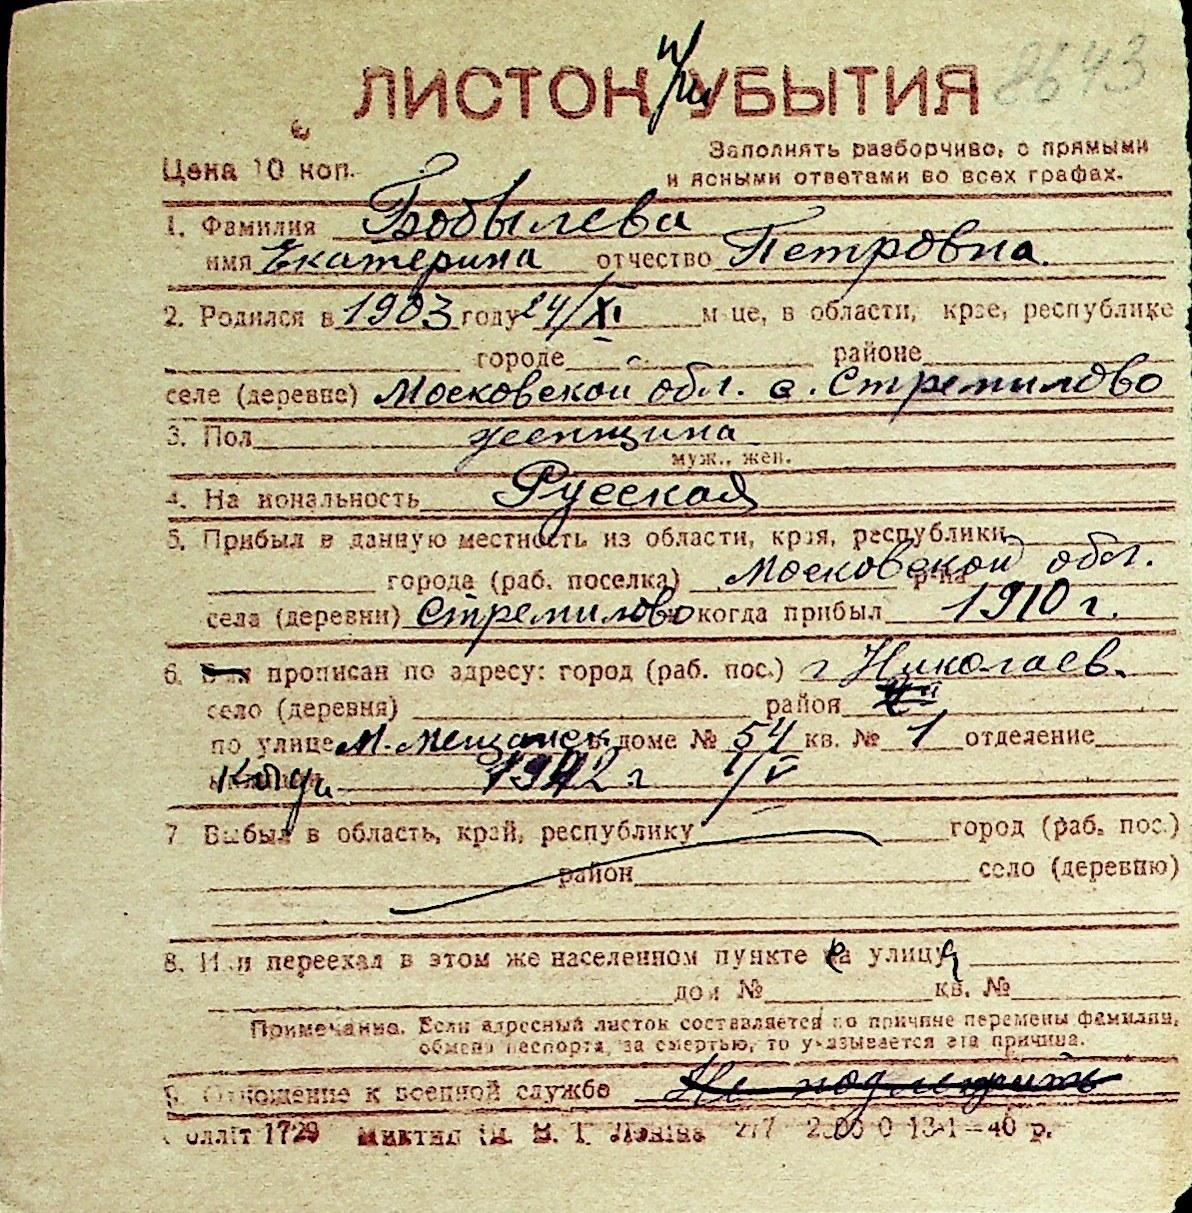 ЛИСТОК УБЫТИЯ 2643
Цена 10 коп.
Заполнять разборчиво, с прямыми
и ясными ответами во всех графах.
1. Фамилия Бобылева
имя Екатерина отчество Петровна.
2. Родился в 1903 году 24/XI м-це, в области, крае, республике
городе районе
селе (деревне) Московской обл. с. Стремилово
3. Пол женщина
муж., жен.
4. Национальность Русская
5. Прибыл в данную местность из области, края, республики
города (раб. поселка) Московской обл. р-на
села (деревни) Стремилово когда прибыл 1910 г.
6. прописан по адресу: город (раб. пос.) г Николаев.
село (деревня) район
по улице М. Мещанск в доме № 54 кв. № 1 отделение
когда 1942 г 1/V
7 Выбыл в область, край, республику город (раб. пос.)
район село (деревню)
8. Или переехал в этом же населенном пункте на улицу
дом № кв. №
Примечание. Если адресный листок составляется по причине перемены фамилии,
обмена паспорта, за смертью, то указывается эта причина.
9. Отношение к военной службе Не подлежит
1729 Леніна 277 13-1—40 р.